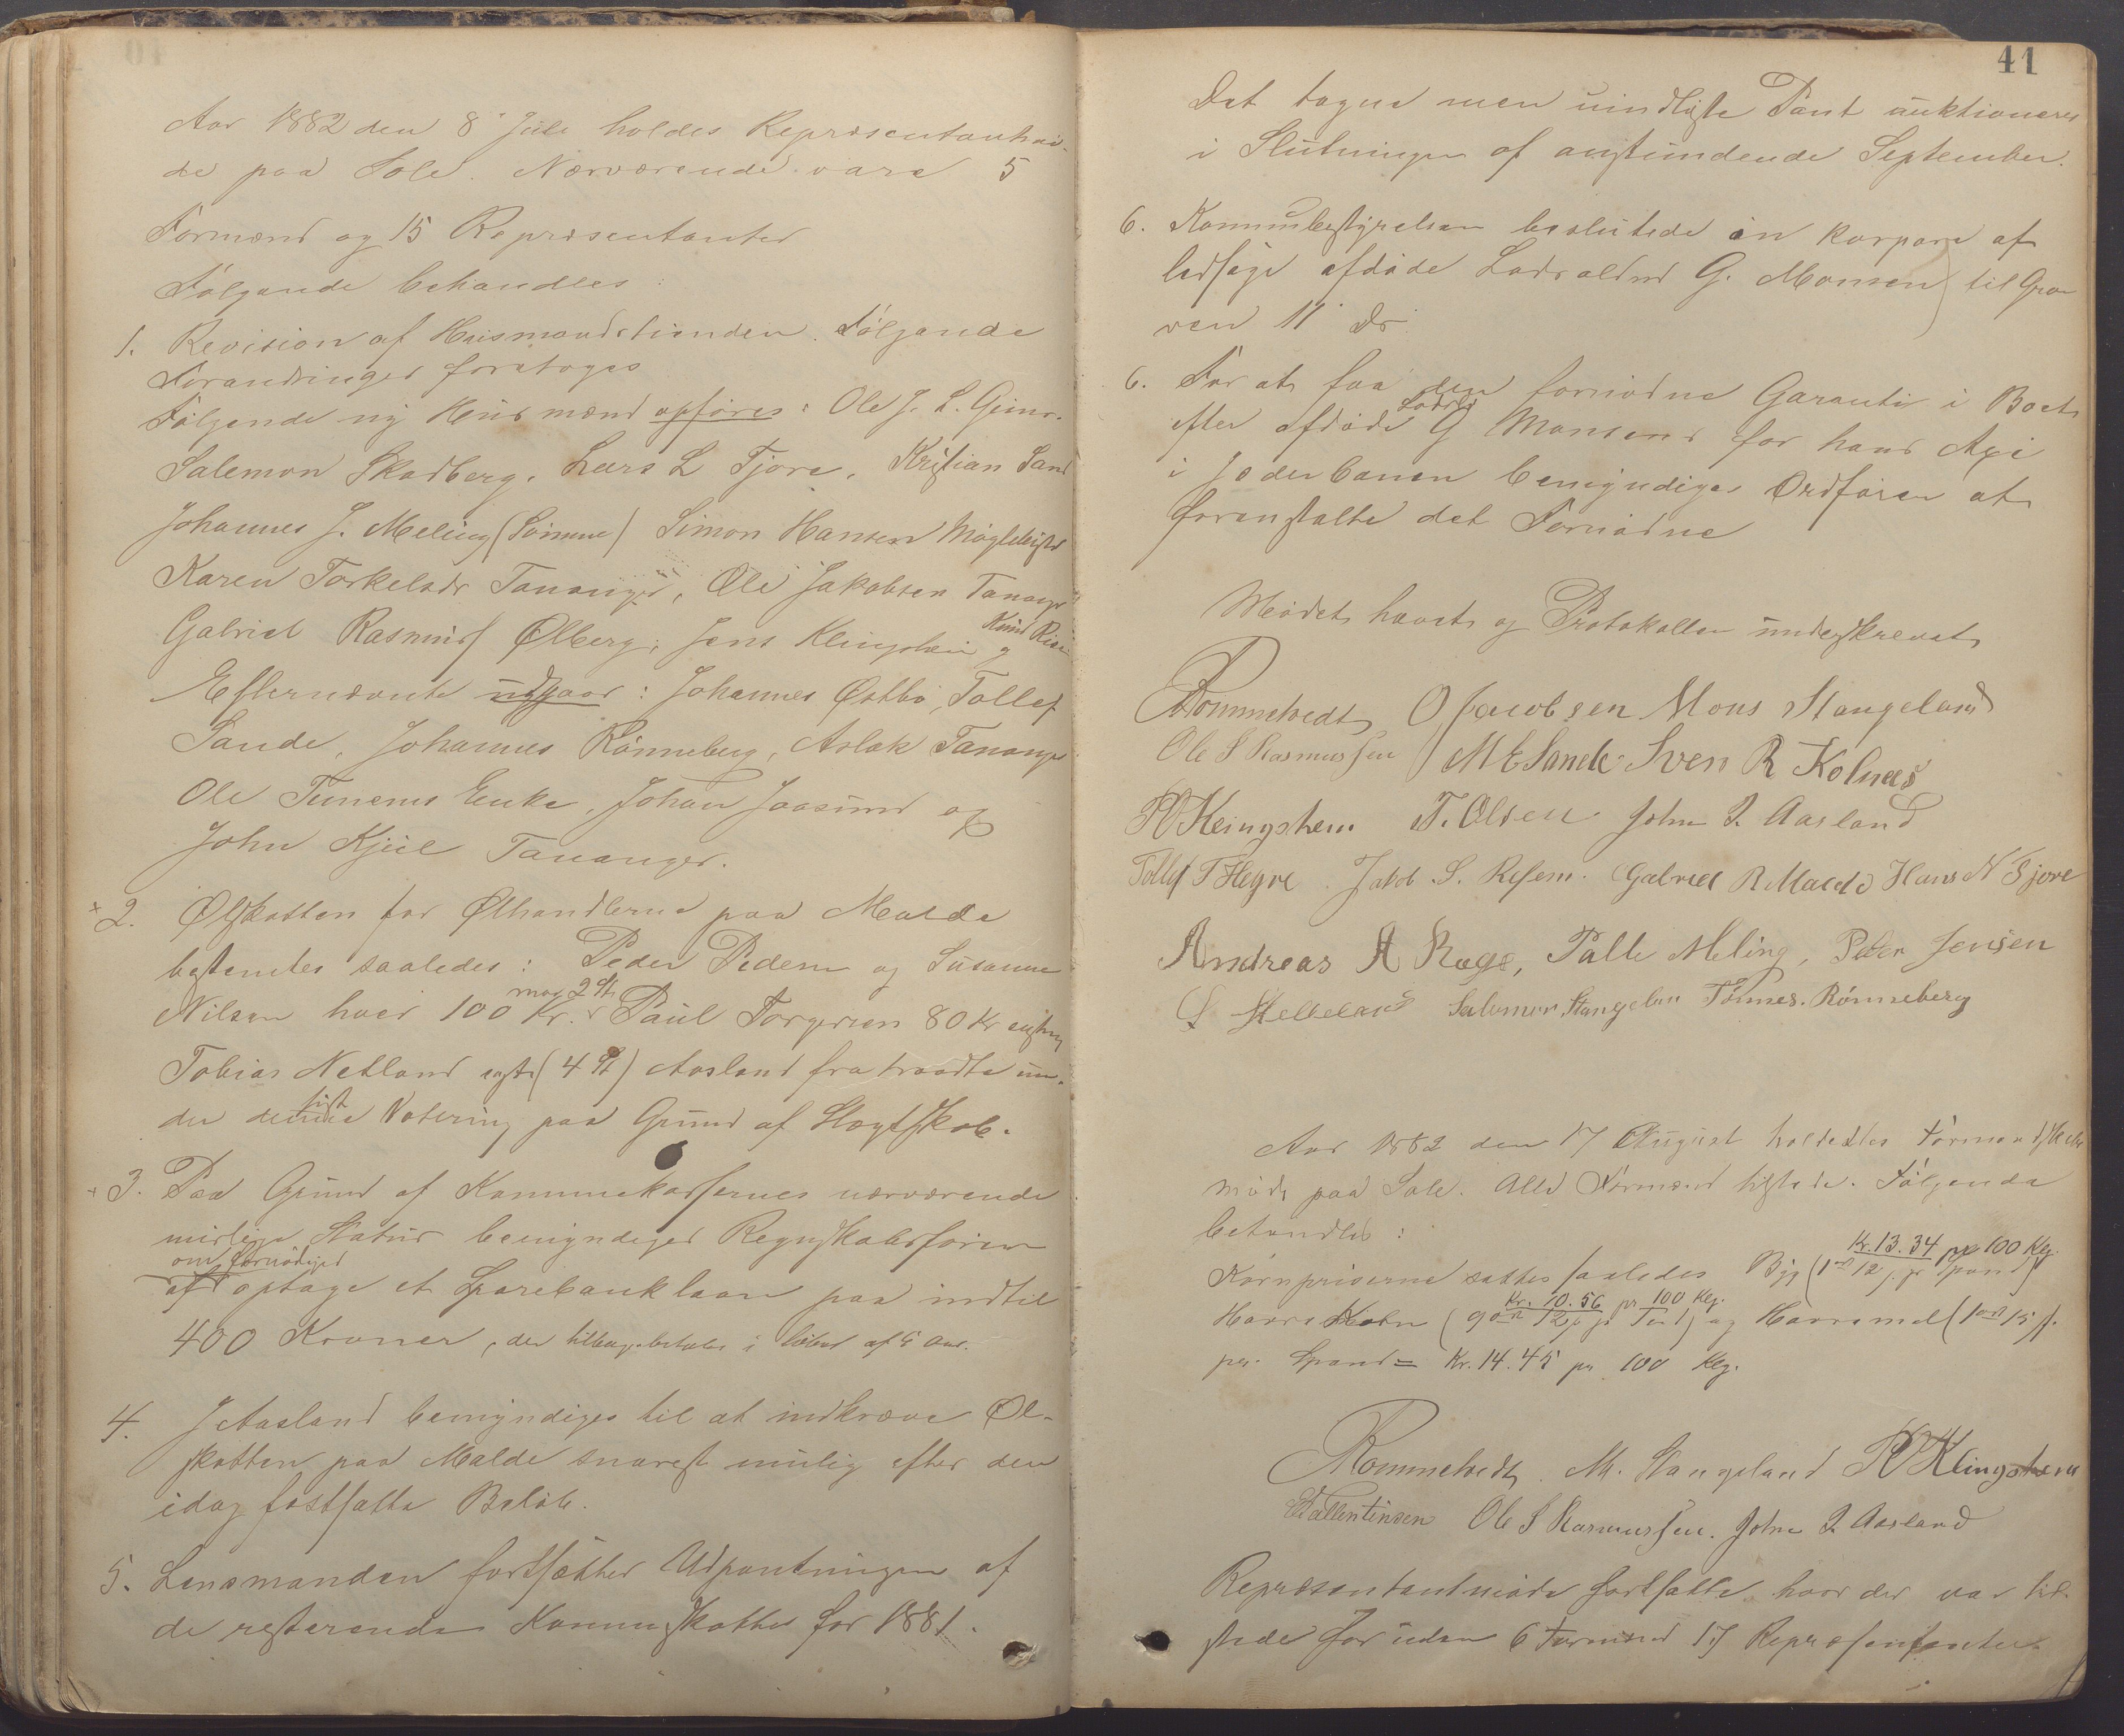 Aar 1882 den 8 Juli holdes Repræsentantmö-
de paa Sole. Nærværende vare 5
Formænd og 15 Repræsentanter
Fölgende behandles:
1. Revision af Husmandstienden. Fölgende
Forandringer foretoges
Fölgende ny Husmænd opföres: Ole J. L.
Salemon Skadberg, Lars L Tjora, Kristian Sand
Johannes J. Meling (Sömme) Simon Hansen
Karen Torkelsdr Tananger, Ole Jakobsen Tanager
Gabriel Rasmus Ölberg, Jens Klingsheim og Knud
Efternævnte udgaar: Johannes Østbö, Tollef
Sande, Johannes Rönneberg, Aslak Tananger
Ole Enke, Johan Joasund og
John Kjul Tananger.
2. Ølskatten for Ølhandlerne paa Malde
bestemtes saaledes: Peder Pedersen og Susanne
Nilsen hver 100 Kr. mod 2 St, Paul Torgersen 80 Kr enst
Tobias Netland enst (4 St) Aasland fratraadte un-
der denne sidste Votering paa Grund af Slægtskab.
3. Paa Grund af Kommunekassernes nærværende
mislige Status bemyndiges Regnskabsföreren
om fornödiges
at optage et Sparebanklaan paa indtil
400 Kroner, der tilbagebetales i löbet af 5 Aar.
4. J Aasland bemyndiges til at indkræve Øl-
skatten paa Malde snarest mulig efter den
idag fastsatte Belöb.
5. Lensmanden fortsætter Udpantningen af
de resterende Kommuneskatter for 1881.
41
Det tagne men uindlöste Pant auktioneres
i Slutningen af anstundende September.
6. Kommunebestyrelsen besluttede in korpore at
ledsage afdöde Lods oldmd G. Monsen til Gra-
ven 11 ds
6. For at faa den fornödne Garanti i Boet
efter afdöde Lods G Monsens for hans Axi
i Jæderbanen bemyndiges Ordfören at
foranstalte det Fornödne
Mödet hævet og Protokollen underskrevet
Rommetvedt O Jacobsen Mons Stangeland
Ole S Rasmussen M E Sande Sven R Kolnes
P V Klingshem T. Olsen John J. Aasland
Tollef T Hegre Jakob S. Risem. Gabriel R Malde Hans N Tjore
Andreas A Rege, Palle Meling, Peder Jensen
S Helleland Salomon Stangelan Tönnes Rönneberg
Aar 1882 den 17 August holdtes Formandskabs
möde paa Sole. Alle Formænd tilstede. Fölgende
behandles:
Kr. 13.34 pr 100 Klg.
Kornpriserne sattes saaledes Byg (1 12 pr Spand)
Kr. 10.56 pr 100 Klg.
Havre Korn (9 12 pr Tönd) og Havremel (1 15 s.
pr. Spand = Kr. 14.45 pr 100 Klg.
Rommetvedt. M. Stangeland P V Klingshem
Vallentinsen Ole S Rasmussen. John J. Aasland
Repræsentantmöde fortsatte hvor der var til-
stede foruden 6 Formænd 17 Repræsentanter